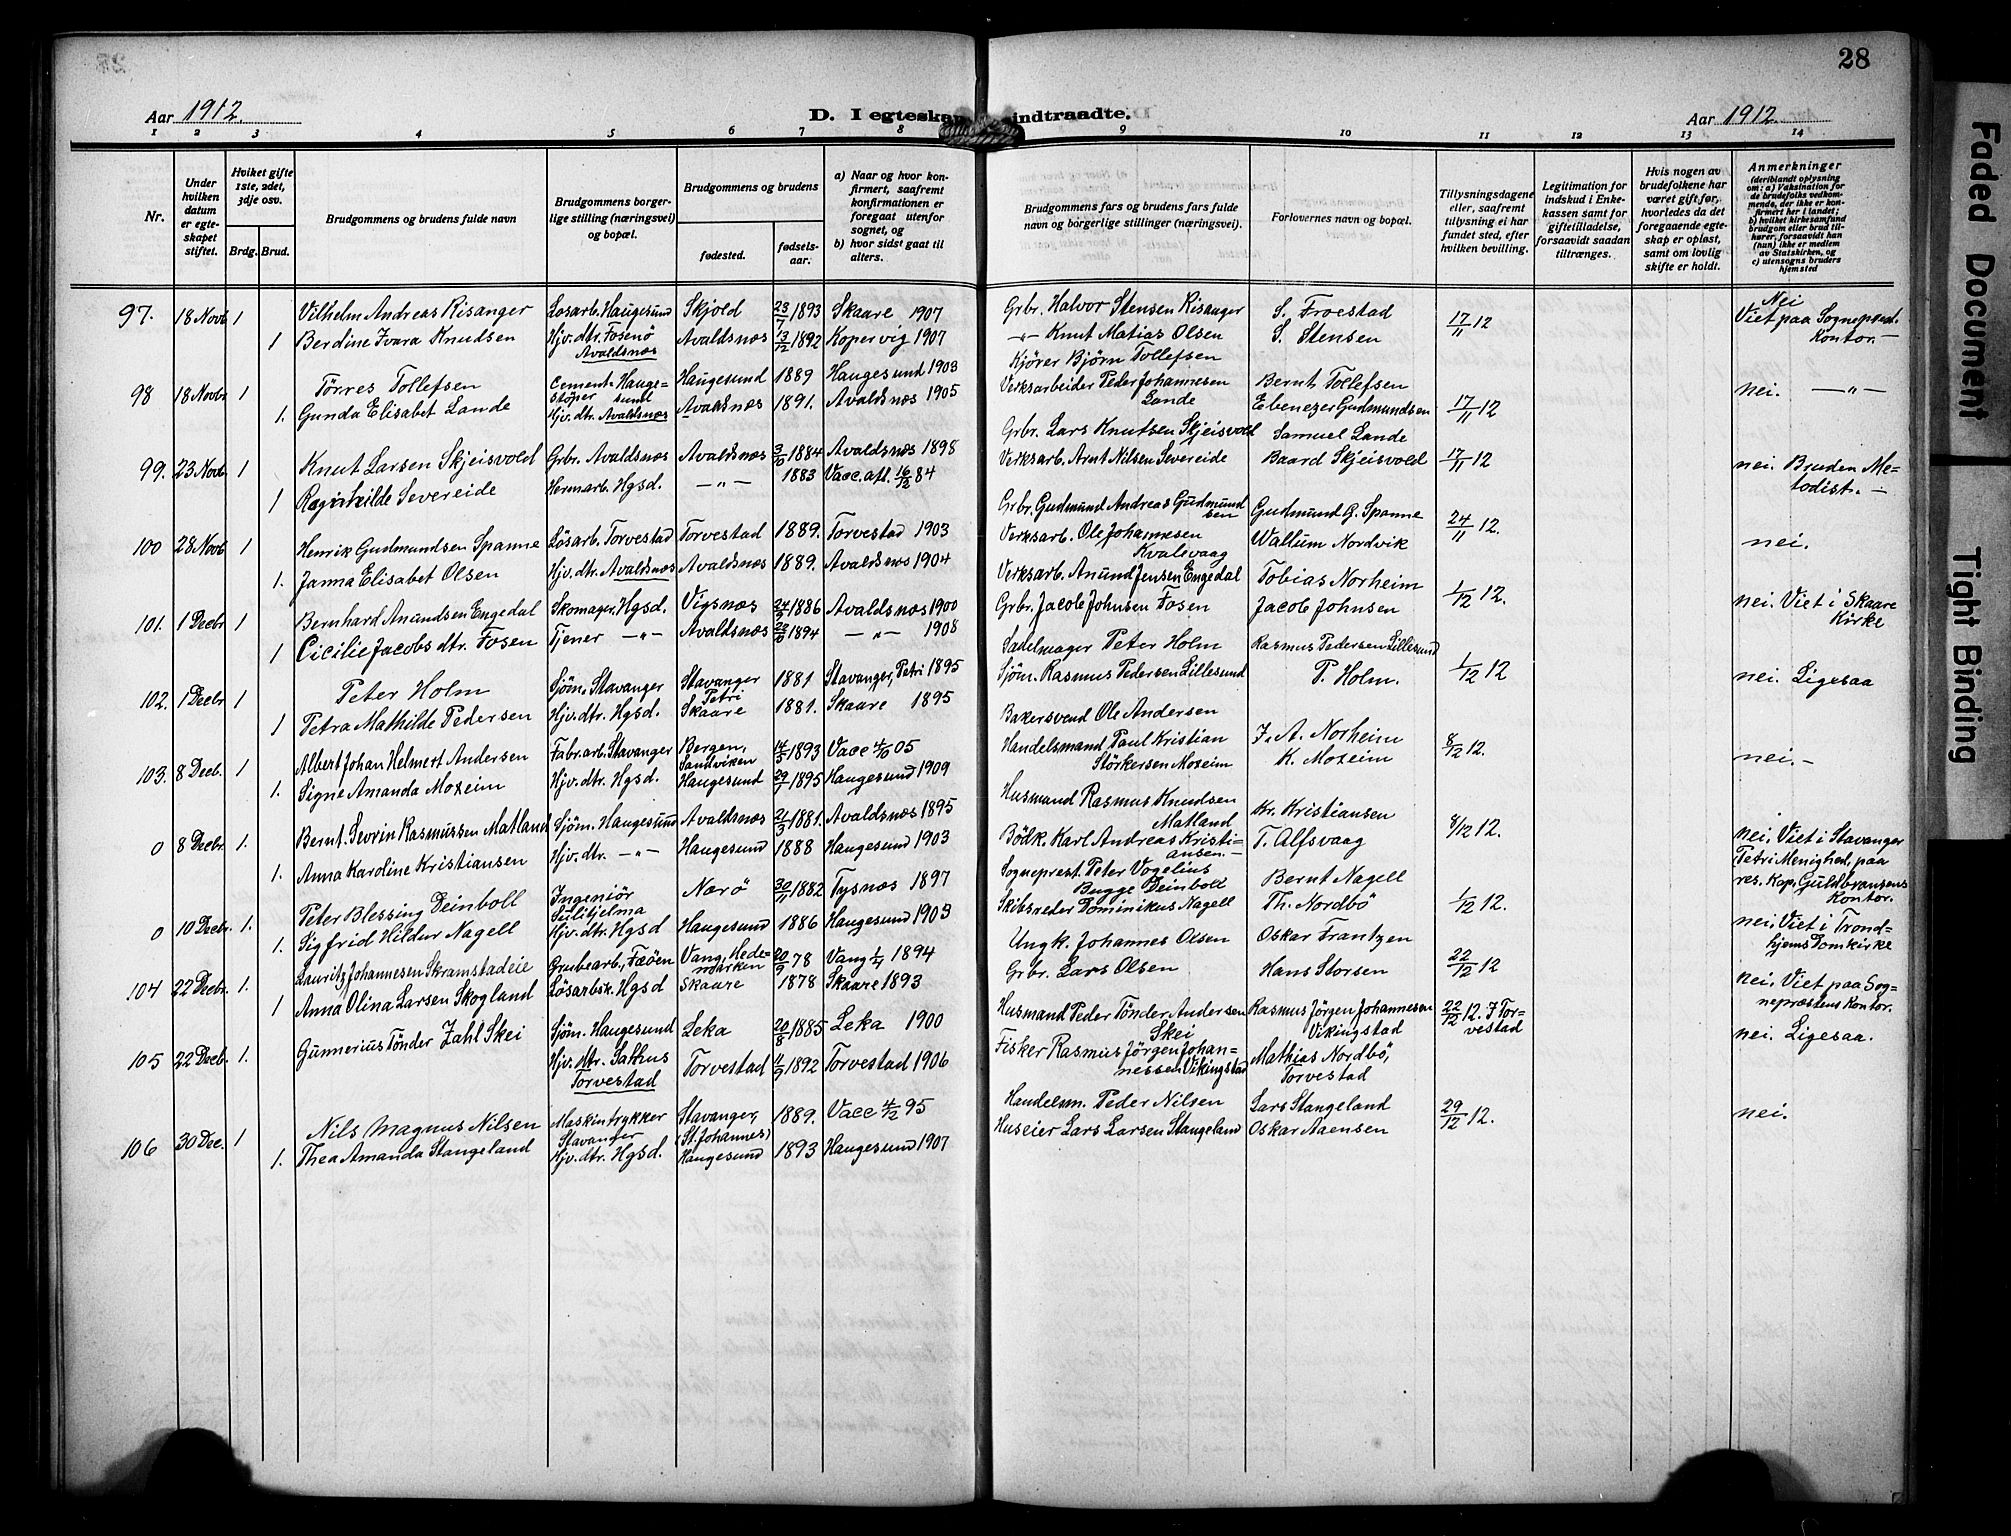 28
Aar 1912.
D. I egteskap indtraadte.
Aar 1912.
1 2 3 4 5 6 7 8 9 10 11 12 13 14
Nr.
Under hvilken datum er egteskapet stiftet.
Hviket gifte 1ste, 2det, 3dje osv.
Brdg. Brud.
Brudgommens og brudens fulde navn
Brudgommens borgerlige stilling (næringsvei) og bopæl.
Brudgommens og brudens
fødested.
fødselsaar.
a) Naar og hvor konfirmert, saafremt konfirmationen er foregaat utenfor sognet, og
b) hvor sidst gaat til alters.
Brudgommens fars og brudens fars fulde navn og borgerlige stillinger (næringsvei).
Forlovernes navn og bopæl.
Tillysningsdagene eller, saafremt tillysning ei har fundet sted, efter hvilken bevilling.
Legitimation for indskud i Enkekassen samt for giftetilladelse, forsaavidt saadan tiltrænges.
Hvis nogen av brudefolkene har været gift før, hvorledes da det foregaaende egteskap er opløst, samt om lovlig skifte er holdt.
Anmerkninger
(deriblandt oplysning om: a) Vaksination for de brudefolks vedkommende, der ikke er konfirmert her i landet; b) hvilket kirkesamfund brudgom eller brud tilhører, forsaavidt han (hun) ikke er medlem av Statskirken, og c) utensogns bruders hjemsted
97. 18 Novb 1 Vilhelm Andreas Risanger Løsarb. Haugesund Skjold 23/7 1893 Skaare 1907 Grbr. Halvor Stensen Risanger S. Froestad 17/11 12 Nei Viet paa Sogneprest. Kontor.-
1 Berdine Ivara Knudsen Hjv. dtr. Fosenö Avaldsnæs Avaldsnæs 13/12 1892 Kopervig 1907 -"- Knut Matias Olsen S. Stensen
98 18 Novbr 1 Törres Tollefsen Cement-stöper Haugesund Haugesund 1889 Haugesund 1903 Kjörer Björn Tollefsen Bernt Tollefsen nei. -"-
1. Gunda Elisabet Lande Hjv. dtr. Avaldsnæs Avaldsnæs 1891. Avaldsnæs 1905 Verksarbeider Peder Johannesen Lande Ebenezer Gudmundsen 17/11 12
Samuel Lande
99. 23 Novb. 1 Knut Larsen Skjeisvold Grbr. Avaldsnæs Avaldsnæs 1884 Avaldsnæs 1898 Grbr. Lars Knutsen Skjeisvold Baard Skjeisvold 17/11 12 nei. Bruden Metodist.-
1 Ragnhilde Severeide Hermarb. Hgsd. -"- 1883 Vacc. att. 16/12 84 Verksarb. Arnt Nilsen Severeide
100 28 Novb 1 Henrik Gudmundsen Spanne Løsarb. Torvestad Torvestad 1889. Torvestad 1903 Grbr. Gudmund Andreas Gudmundsen Gudmund G. Spanne 24/11 12. nei.
1. Janna Elisabet Olsen Hjv. dtr. Avaldsnæs Avaldsnæs 1889. Avaldsnæs 1904 Verksarb. Ole Johannesen Kvalsvaag Wallum Nordvik
101. 1 Decbr 1 Bernhard Anundsen Engedal Skomager, Hgsd. Vigsnæs 1886 Avaldsnæs 1900 Verksarb. Anund Jensen Engedal Tobias Norheim 1/12 12. nei. Viet i Skaare Kirke
1 Cicilie Jacobs dtr. Fosen Tjener -"- Avaldsnæs 1894 -"- 1908 Grbr. Jacob Johnsen Fosen Jacob Johnsen
102. 1 Decbr 1 Peter Holm Sjöm. Stavanger Stavanger Petri 1881 Stavanger, Petri 1895 Sadelmager Peter Holm Rasmus Pedersen Lillesund 1/12 12 nei. Ligesaa
1 Petra Mathilde Pedersen Hjv. dtr. Hgsd. Skaare 1881. Skaare 1895 Sjöm. Rasmus Pedersen Lillesund P. Holm.
103. 8 Decb. 1 Albert Johan Helmert Andersen Fabr. arb. Stavanger Bergen, Sandviken 14/5 1893 Vacc 4/10 05 Bakersvend Ole Andersen J. A. Norheim 8/12 12. nei.-
1. Signe Amanda Mozeim Hjv. dtr. Hgsd. Haugesund 29/1 1895 Haugesund 1909 Handelsmand Paul Kristian Störkersen Mozeim K. Mozeim
0 8 Decbr 1. Bernt Sevrin Rasmussen Matland Sjöm. Haugesund Avaldsnæs 21/3 1881. Avaldsnæs 1895 Husmand Rasmus Knudsen Matland Kr. Kristiansen 8/12 12. nei. Viet i Stavanger Petri Menighed, paa res. Kap. Guldbransens Kontor.
1. Anna Karoline Kristiansen Hjv. dtr. -"- Haugesund 1888 Haugesund 1903 Bödk. Karl Andreas Kristiansen.- T. Alfsvaag
0 10 Decbr. 1. Peter Blessing Deinboll Ingeniör Sulitjelma Nærö 30/11 1882 Tysnæs 1897 Sogneprest. Peter Vogelius Bugge Deinboll Bernt Nagell 1/12 12. nei. Viet i Trondhjems Domkirke
1. Sigfrid Hildur Nagell Hjv. dtr. Hgsd Haugesund 1886 Haugesund 1903 Skibsreder Dominikus Nagell Th. Nordbö
104 22 Decbr. 1. Lauritz Johannesen Skramstadeie Grubearb., Fæöen Vang, Hedemarken 20/9 78 Vang 1/4 1894 Ungk. Johannes Olsen Oskar Frantzen 22/12 12 nei. Viet paa Sognepræstens Kontor.
1 Anna Olina Larsen Skogland Løsarbsk. Hgsd Skaare 1878 Skaare 1893 Grbr. Lars Olsen Hans Storsen
105 22 Decb. 1. Gunnerius Tönder Zahl Skei Sjöm. Haugesund Leka 20/8 1885 Leka 1900 Husmand Peder Tönder Andersen Skei Rasmus Jörgen Johannesen Vikingstad 22/12 12. I Torvestad nei. Ligesaa.
Hjv. dtr. Sakkus Torvestad Torvestad 1892 Torvestad 1906 Fisker Rasmus Jörgen Johannessen Vikingstad Mathias Nordbö, Torvestad
106 30 Dec. 1 Nils Magnus Nilsen Maskintrykker Stavanger Stavanger, (St. Johannes) 1889. Vacc 4/12 95 Handelsm. Peder Nilsen Lars Stangeland 29/12 12. nei.
1. Thea Amanda Stangeland Hjv. dtr. Hgsd. Haugesund 1893 Haugesund 1907 Huseier Lars Larsen Stangeland Oskar Aaensen
Faded Document
Tight Binding